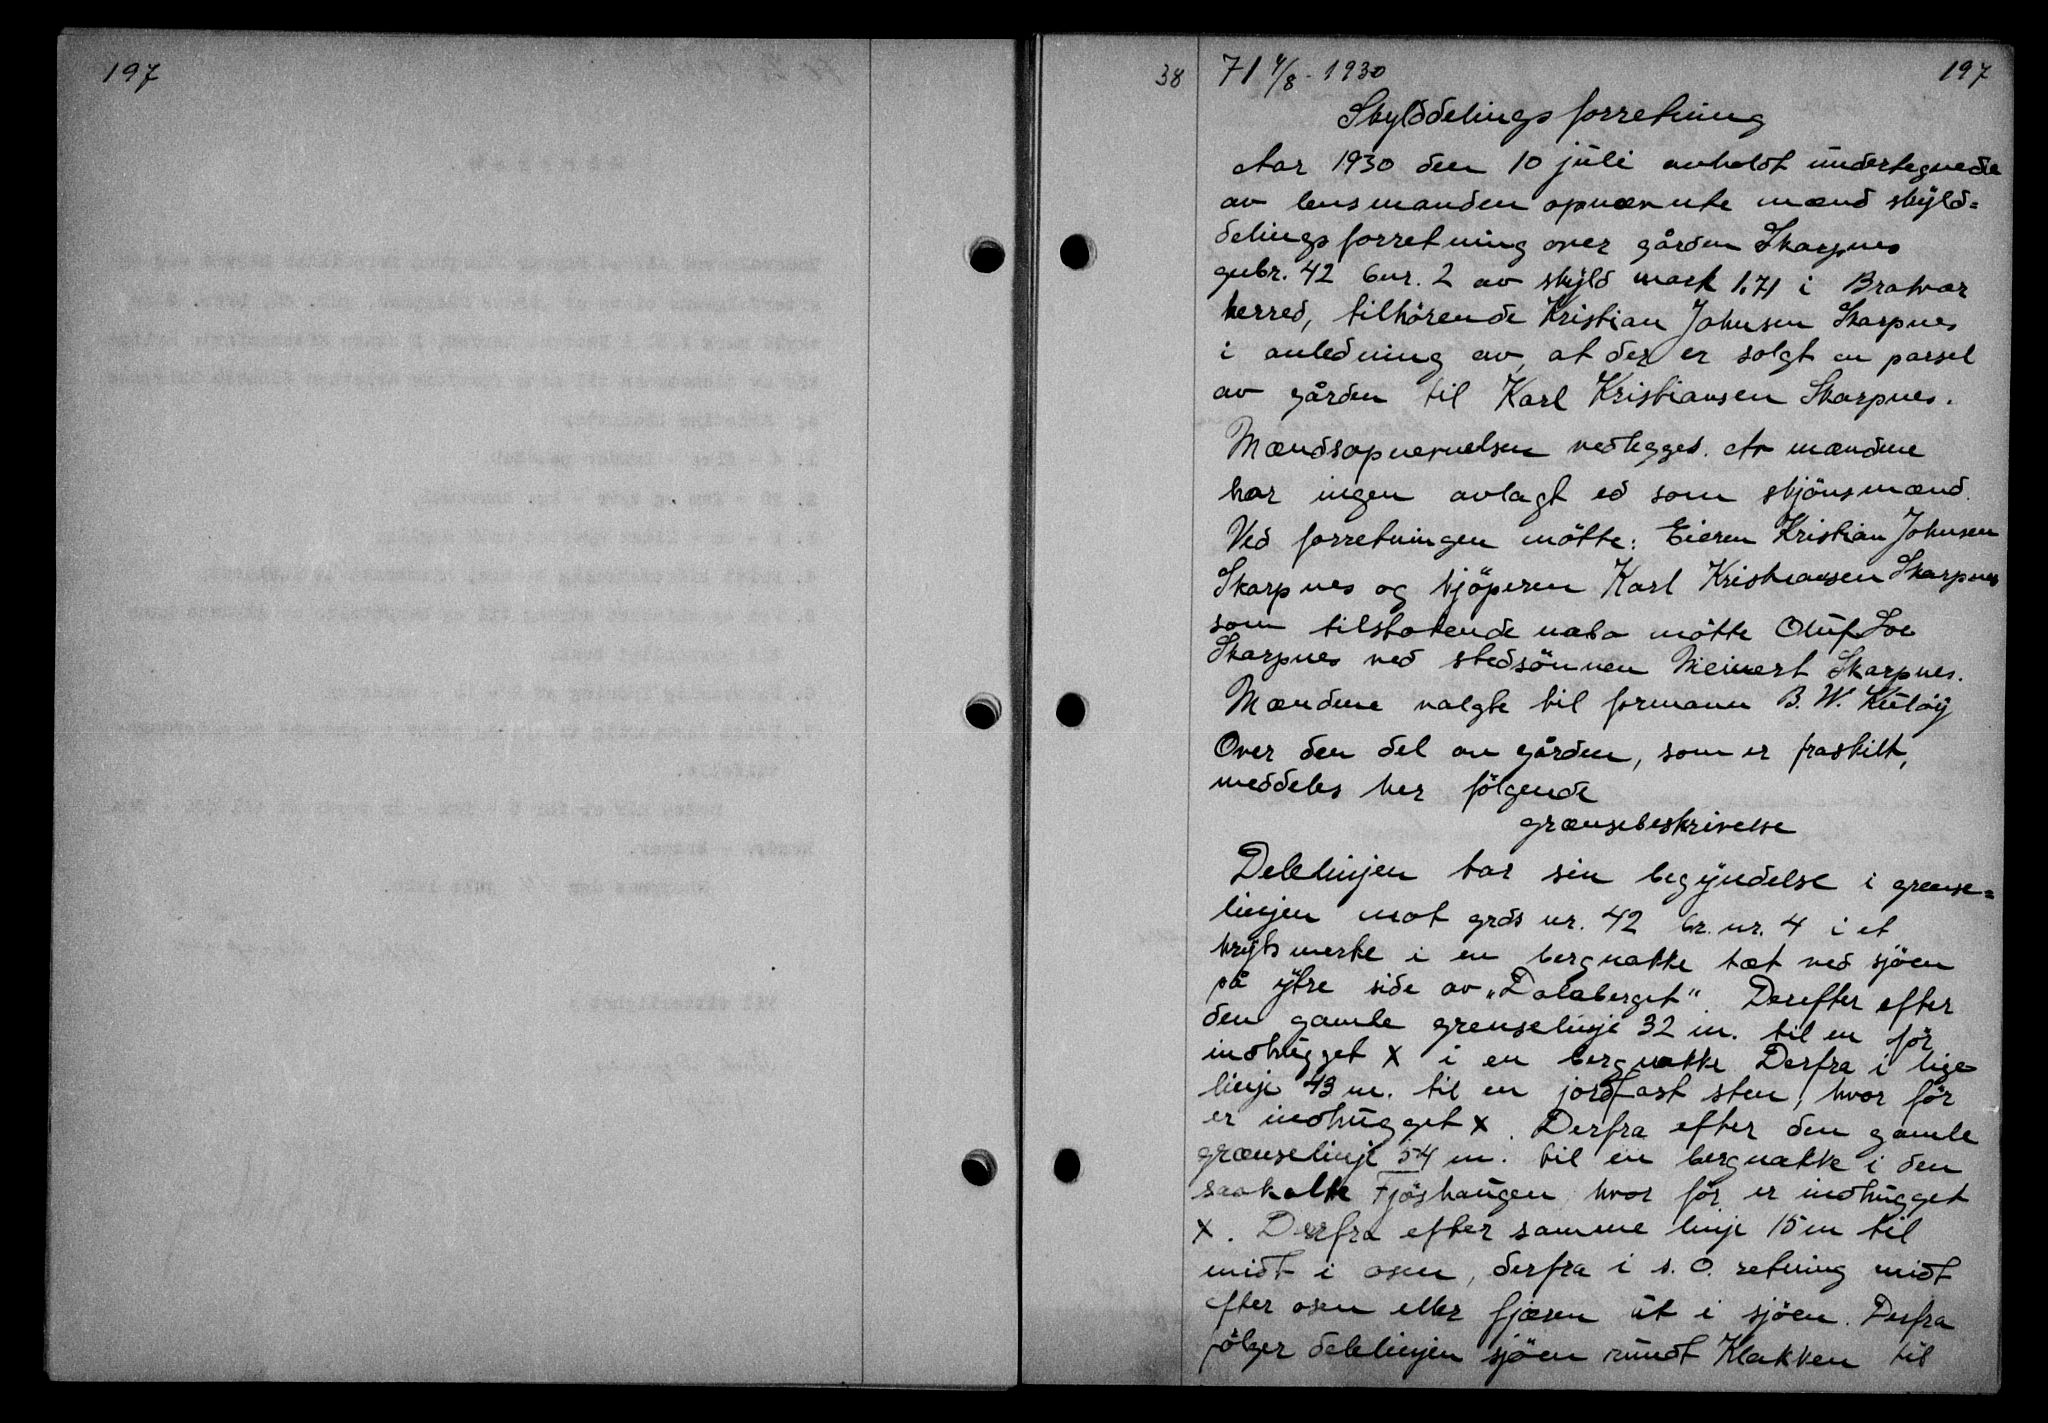 197
38 71 4/8 - 1930 197
Skylddelingsforretning
Aar 1930 den 10 juli avholdt undertegnede
av lensmanden opnævnte mænd skyld=
delingsforretning over gården Skarpnes
gnbr. 42 bnr. 2 av skyld mark 1.71 i Bratvær
herred, tilhörende Kristian Johnsen Skarpnes
i anledning av, at der er solgt en parsel
av gården til Karl Kristiansen Skarpnes.
Mændsopnevnelsen vedlegges. Av mændene
har ingen avlagt ed som skjönsmænd.
Ved forretningen mötte: Eieren Kristian Johnsen
Skarpnes og kjöperen Karl Kristiansen Skarpnes
som tilstötende nabo mötte Oluf
Skarpnes ved stedsönnen Meinert Skarpnes.
Mændene valgte til formann B. W. Kulöy
Over den del av gården, som er fraskilt,
meddeles her fölgende
grænsebeskrivelse
Delelinjen tar sin begyndelse i grense=
linjen mot grds nr. 42 br. nr. 4 i et
krysmerke i en bergnakke tæt ved sjöen
på ytre side av "Dalaberget". Derefter efter
den gamle grenselinje 32 m. til en för
indhugget X i en bergnakke Derfra i lige
linje 43 m. til en jordfast sten, hvor för
er indhugget X. Derfra efter den gamle
grænselinje 54 m. til en bergnakke i den
saakalte Fjöshaugen hvor för er indhugget
X. Derfra efter samme linje 15 m til
midt i osen, derfra i s. O. retning midt
efter osen eller fjæren ut i sjöen. Derfra
fölger delelinjen sjöen rundt Klakken til